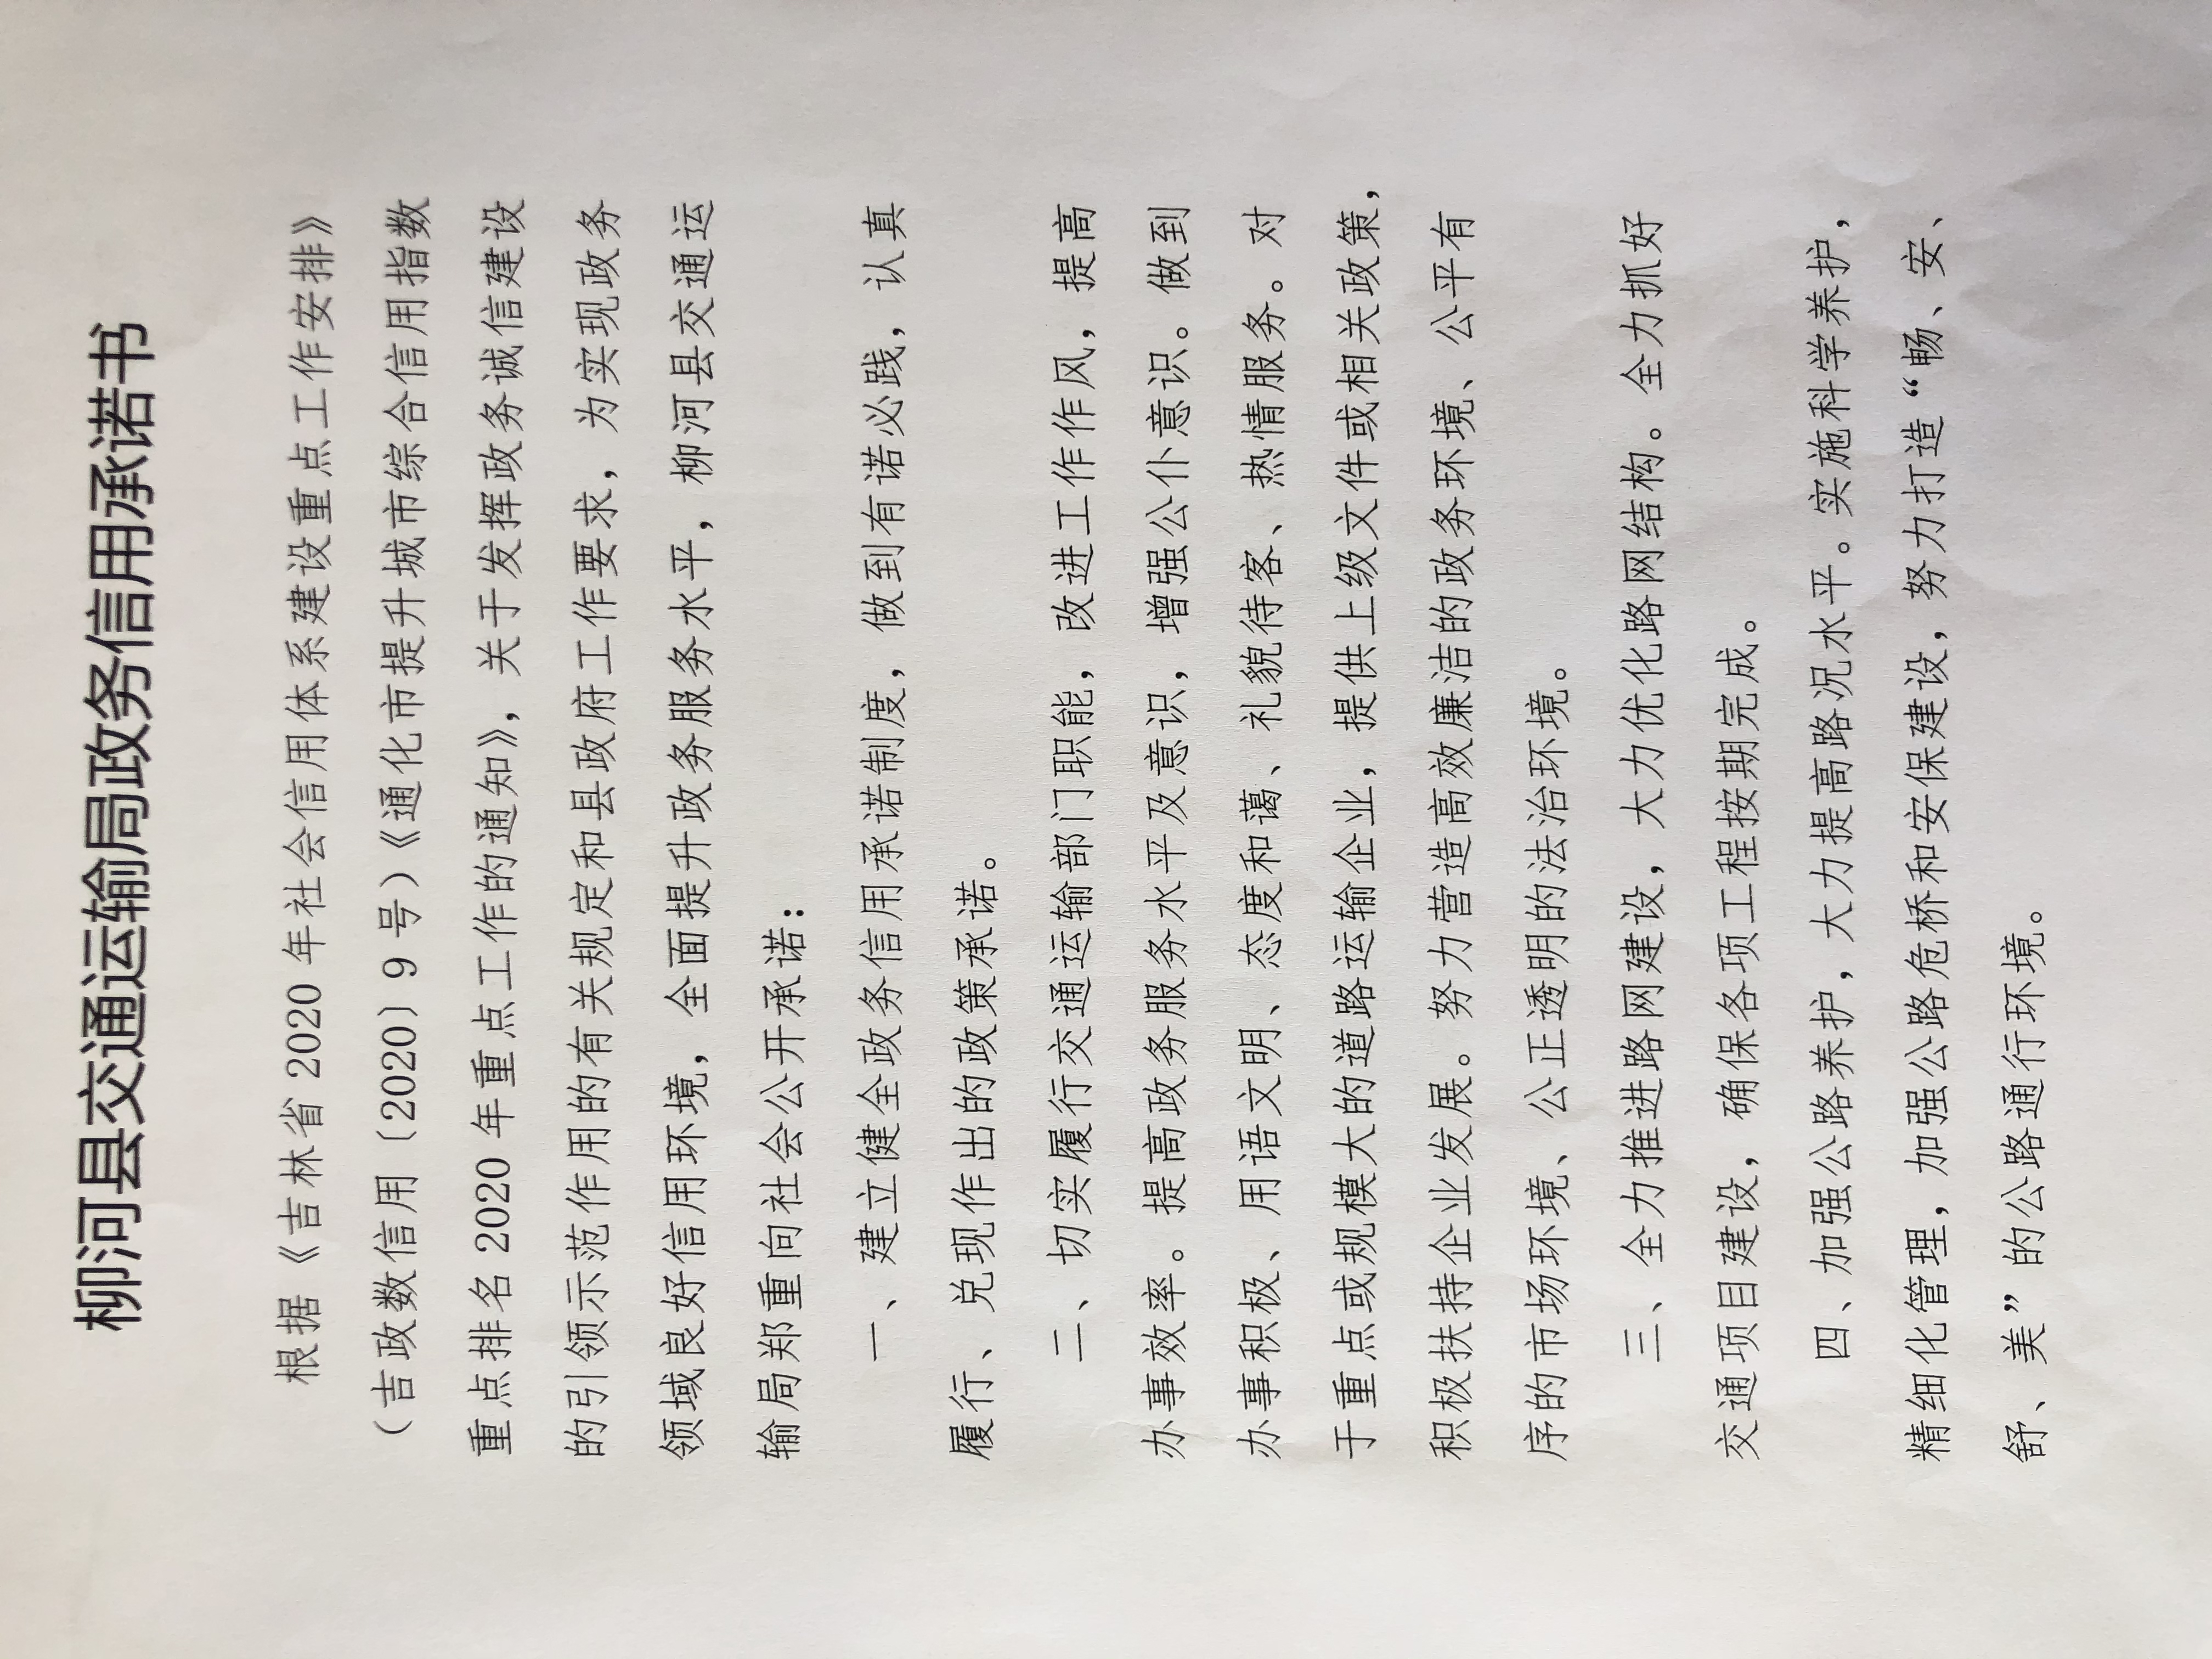 柳河县交通运输局政务信用承诺书
根据《吉林省 2020 年社会信用体系建设重点工作安排》
（吉政数信用〔2020〕9 号）《通化市提升城市综合信用指数
重点排名 2020 年重点工作的通知》，关于发挥政务诚信建设
的引领示范作用的有关规定和县政府工作要求，为实现政务
领域良好信用环境，全面提升政务服务水平，柳河县交通运
输局郑重向社会公开承诺：
一、建立健全政务信用承诺制度，做到有诺必践，认真
履行、兑现作出的政策承诺。
二、切实履行交通运输部门职能，改进工作作风，提高
办事效率。提高政务服务水平及意识，增强公仆意识。做到
办事积极、用语文明、态度和蔼、礼貌待客、热情服务。对
于重点或规模大的道路运输企业，提供上级文件或相关政策，
积极扶持企业发展。努力营造高效廉洁的政务环境、公平有
序的市场环境、公正透明的法治环境。
三、全力推进路网建设，大力优化路网结构。全力抓好
交通项目建设，确保各项工程按期完成。
四、加强公路养护，大力提高路况水平。实施科学养护，
精细化管理，加强公路危桥和安保建设，努力打造“畅、安、
舒、美”的公路通行环境。